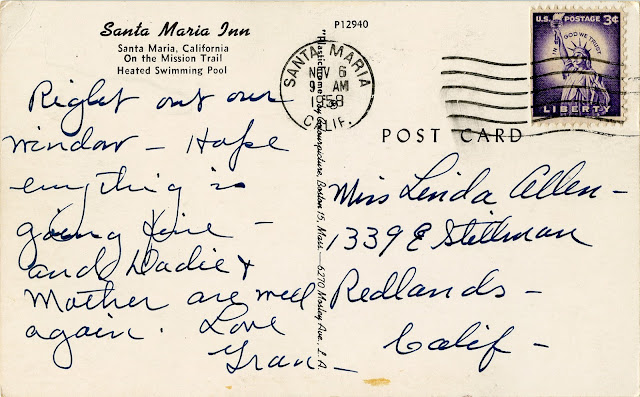 Santa Maria Inn
Santa Maria, California
On the Mission Trail
Heated Swimming Pool
P12940
SANTA MARIA
NOV 6
9 AM
1958
CALIF.
U.S. POSTAGE 3¢
IN GOD WE TRUST
LIBERTY
POST CARD
Right out our
window – Hope
everything is
going fine –
and Dadie &
Mother are well
again. Love
Gran –
Miss Linda Allen –
1339 E Stillman
Redlands –
Calif –
Colourpicture, Boston 15, Mass. — 6270 Mosley Ave., L. A.